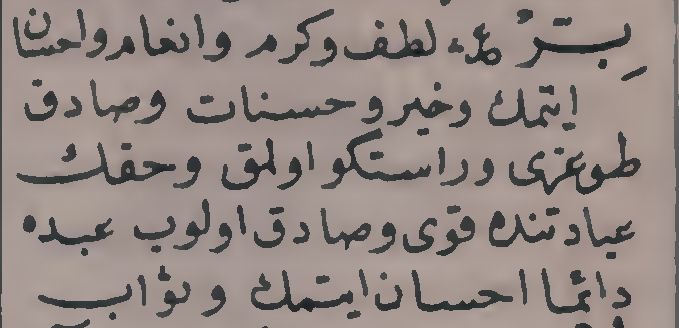 بِتَرُّ ع‍ لطف وكرم وانعام واحسان
ايتمك وخير وحسنات وصادق
طوغرى وراستكو اولمق وحقك
عبادتنده قوى وصادق اولوب عبده
دائما احسان ايتمك وثواب